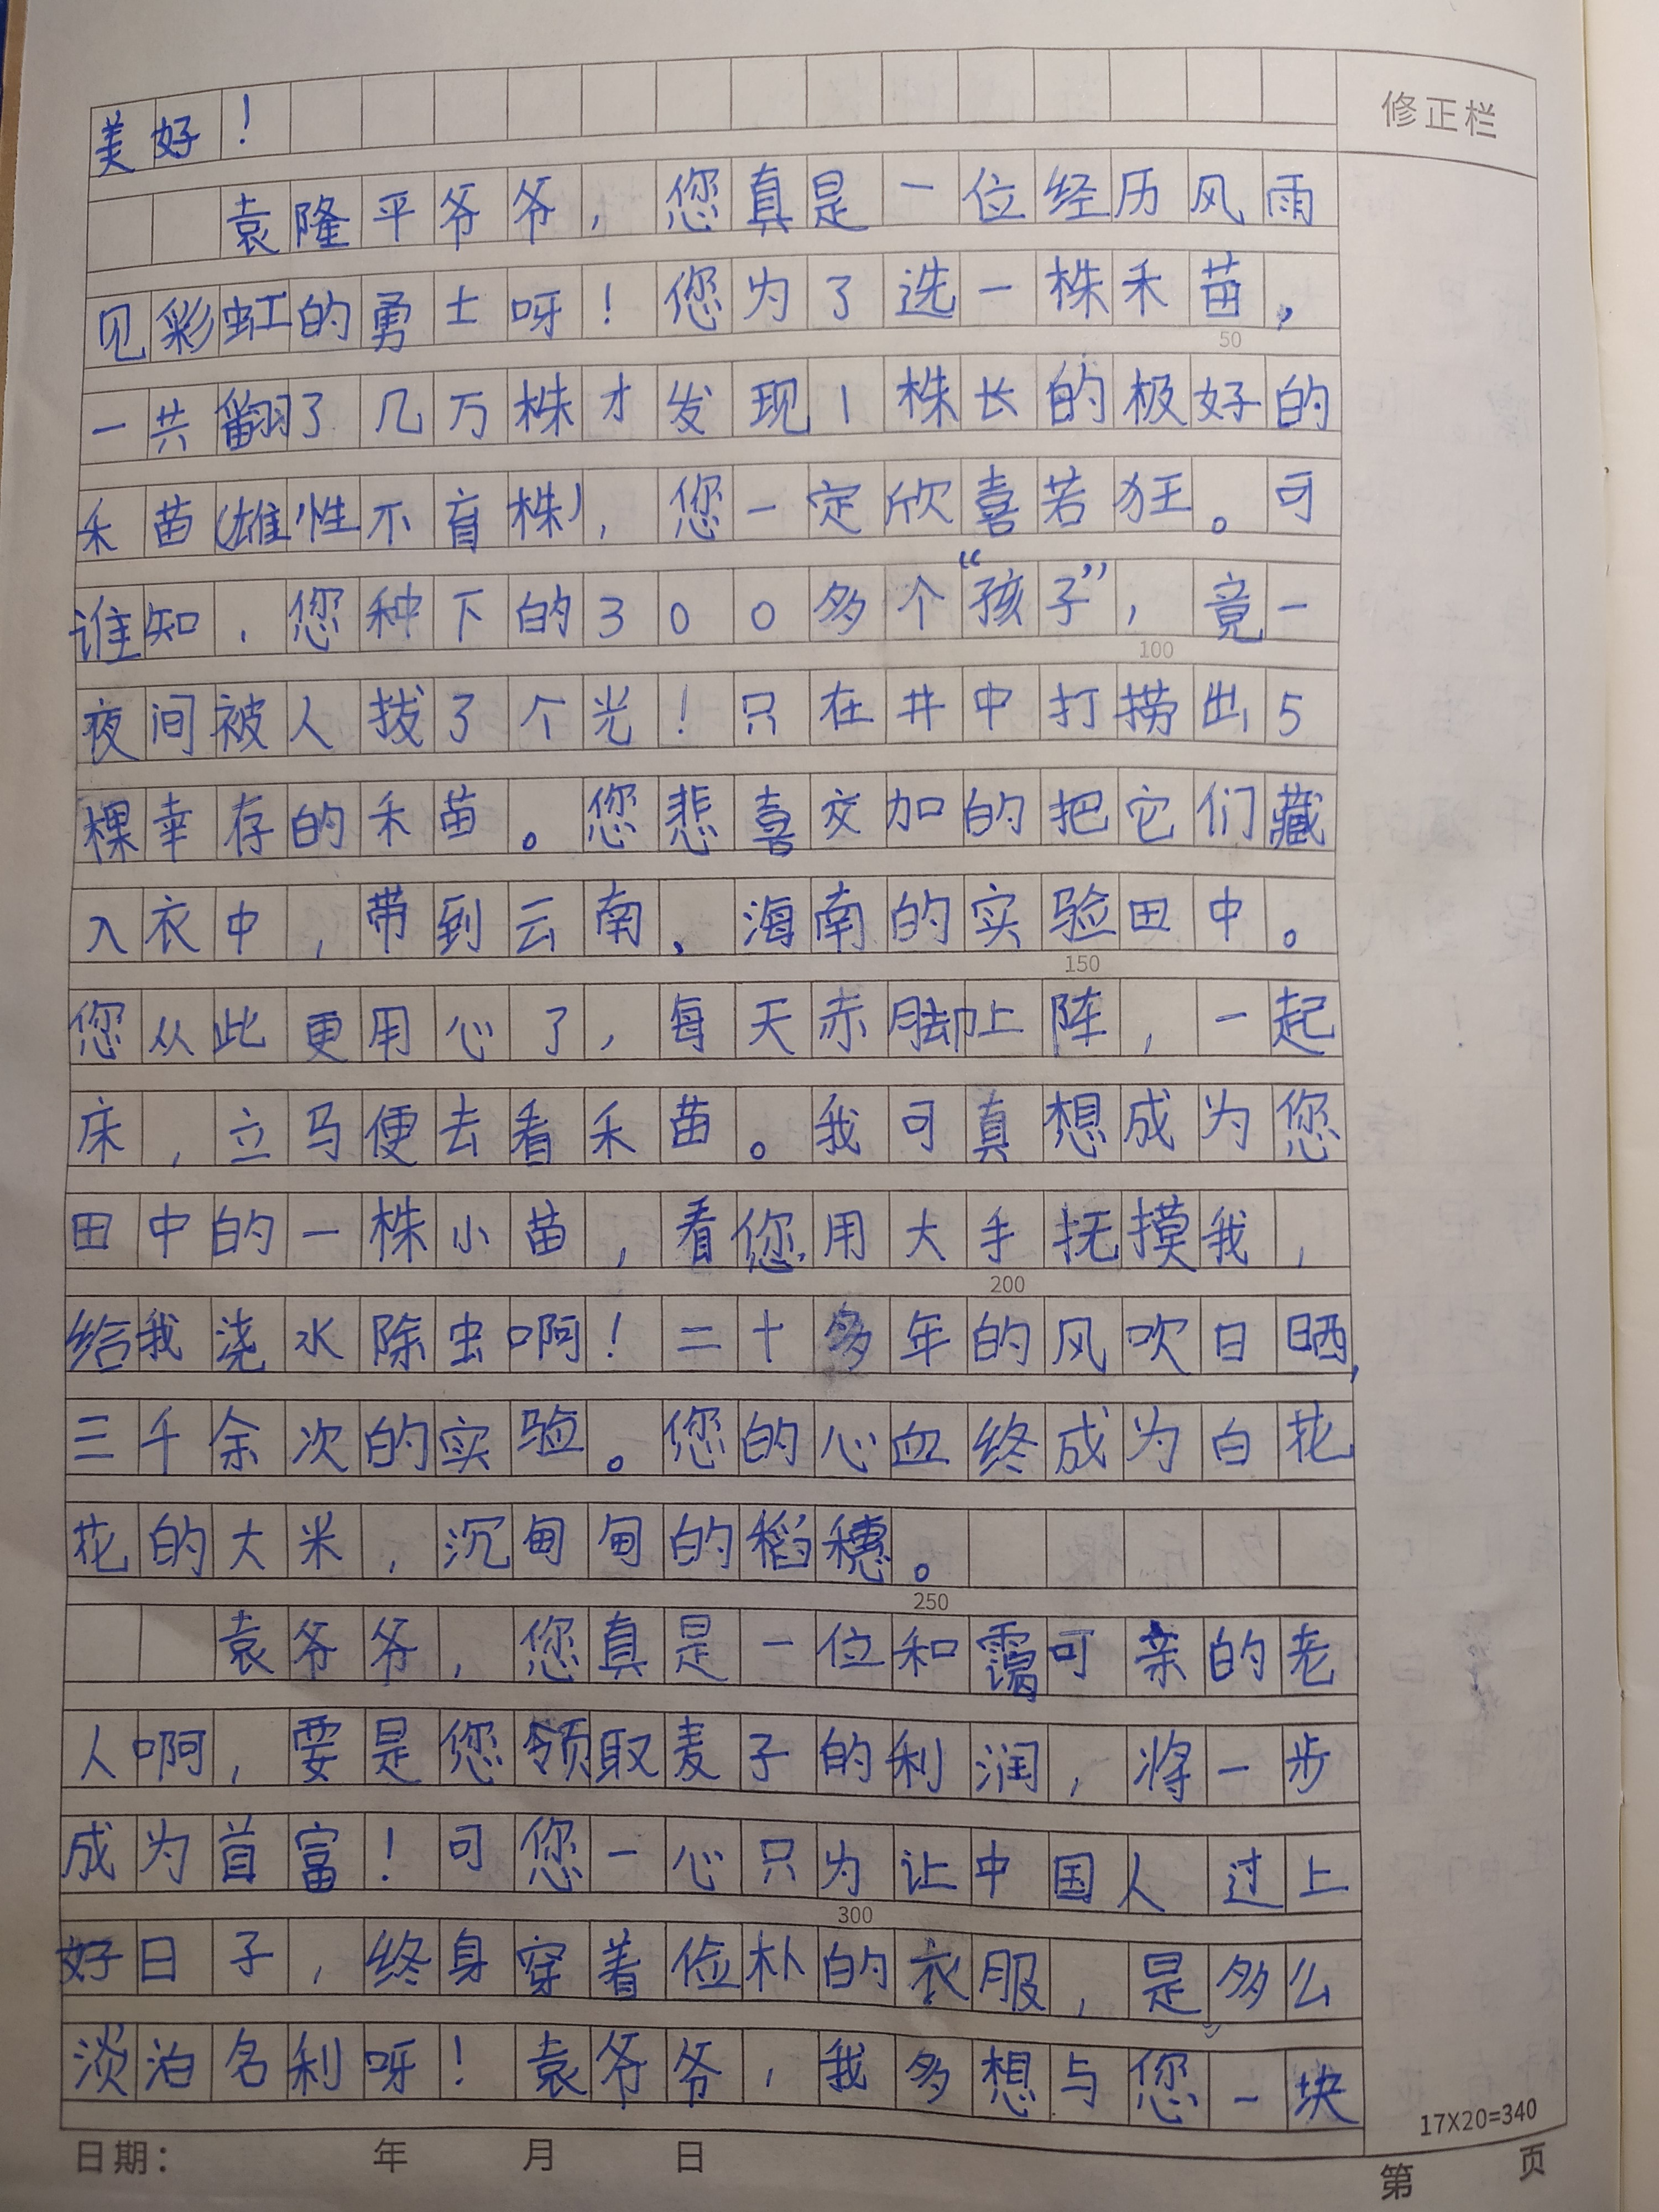 修正栏
美好！
袁隆平爷爷，您真是一位经历风雨
见彩虹的勇士呀！您为了选一株禾苗，
50
一共翻了几万株才发现1株长的极好的
禾苗(雄性不育株)，您一定欣喜若狂。可
谁知，您种下的300多个“孩子”，竟一
100
夜间被人拔了个光！只在井中打捞出5
棵幸存的禾苗。您悲喜交加的把它们藏
入衣中，带到云南、海南的实验田中。
150
您从此更用心了，每天赤脚上阵，一起
床，立马便去看禾苗。我可真想成为您
田中的一株小苗，看您用大手抚摸我，
200
给我浇水除虫啊！二十多年的风吹日晒，
三千余次的实验。您的心血终成为白花
花的大米，沉甸甸的稻穗。
250
袁爷爷，您真是一位和霭可亲的老
人啊，要是您领取麦子的利润，将一步
成为首富！可您一心只为让中国人过上
300
好日子，终身穿着俭朴的衣服，是多么
淡泊名利呀！袁爷爷，我多想与您一块
17X20=340
日期： 年 月 日
第 页